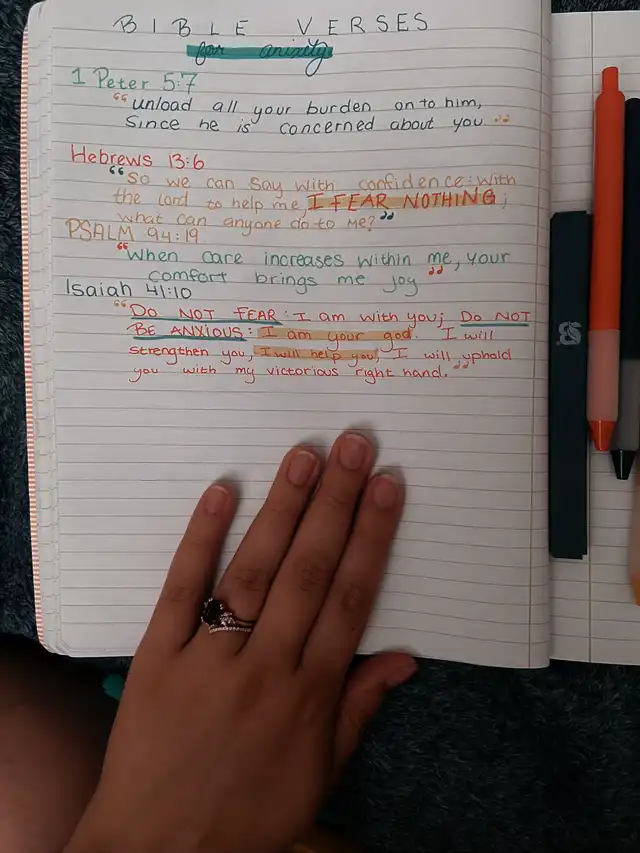 BIBLE VERSES
for anixty
1 Peter 5:7
"unload all your burden on to him,
since he is concerned about you."
Hebrews 13:6
"So we can say with confidence: With
the Lord to help me, I FEAR NOTHING;
what can anyone do to me?"
PSALM 94:19
"When care increases within me, your
comfort brings me joy"
Isaiah 41:10
"DO NOT FEAR: I am with you; DO NOT
BE ANXIOUS: I am your god. I will
strengthen you, I will help you, I will uphold
you with my victorious right hand."